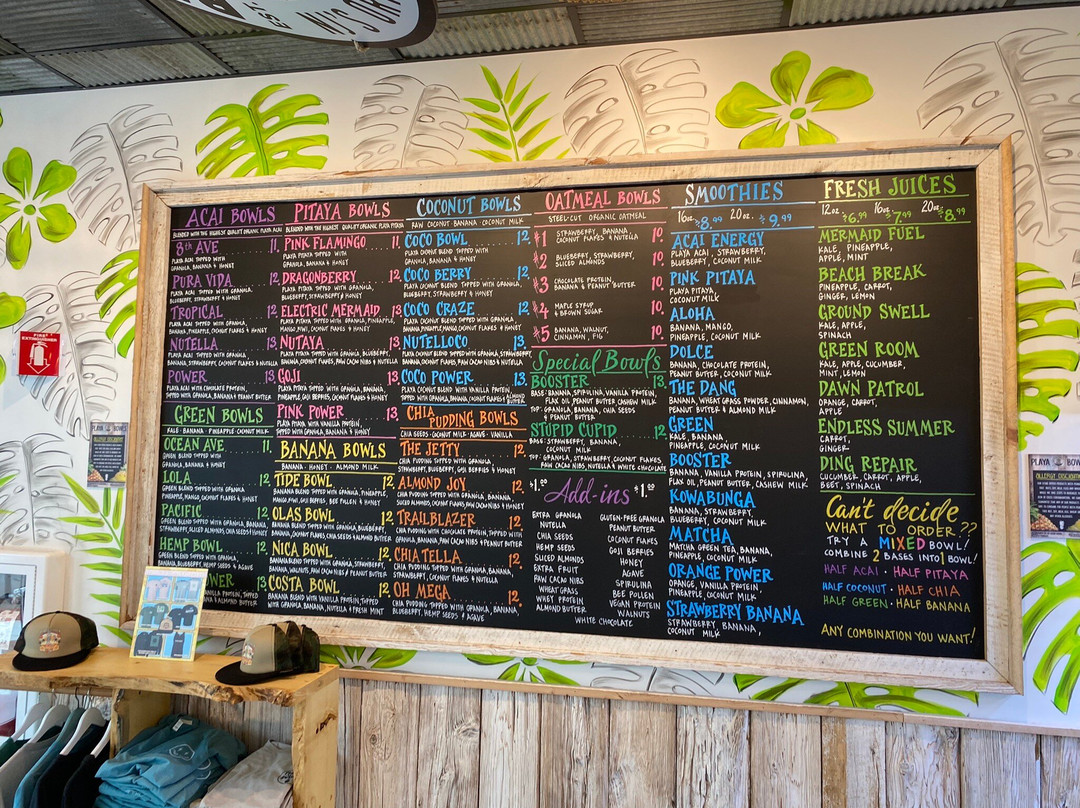 EST.
FIRE
EXTINGUISHER
ACAI BOWLS
BLENDED WITH THE HIGHEST QUALITY ORGANIC PLAYA ACAI
8th AVE 11.
PLAYA ACAI TOPPED WITH
GRANOLA, BANANA & HONEY
PURA VIDA 12.
PLAYA ACAI TOPPED WITH GRANOLA,
BLUEBERRY, STRAWBERRY & HONEY
TROPICAL 12.
PLAYA ACAI TOPPED WITH GRANOLA,
BANANA, PINEAPPLE, COCONUT FLAKES & HONEY
NUTELLA 13.
PLAYA ACAI TOPPED WITH GRANOLA,
BANANA, STRAWBERRY, COCONUT FLAKES & NUTELLA
POWER 13.
PLAYA ACAI WITH CHOCOLATE PROTEIN,
TOPPED WITH GRANOLA, BANANA & PEANUT BUTTER
GREEN BOWLS
KALE · BANANA · PINEAPPLE · COCONUT MILK
OCEAN AVE 11.
GREEN BLEND TOPPED WITH
GRANOLA, BANANA & HONEY
LOLA 12.
GREEN BLEND TOPPED WITH GRANOLA,
PINEAPPLE, MANGO, COCONUT FLAKES & HONEY
PACIFIC 12.
GREEN BLEND TOPPED WITH GRANOLA, BANANA,
STRAWBERRY, SLICED ALMONDS, CHIA SEEDS & HONEY
HEMP BOWL 12.
GREEN BLEND TOPPED WITH GRANOLA,
13.
PITAYA BOWLS
BLENDED WITH THE HIGHEST QUALITY ORGANIC PLAYA PITAYA
PINK FLAMINGO 11.
PLAYA PITAYA TOPPED WITH
GRANOLA, BANANA & HONEY
DRAGONBERRY 12.
PLAYA PITAYA TOPPED WITH GRANOLA,
BLUEBERRY, STRAWBERRY & HONEY
ELECTRIC MERMAID 13.
PLAYA PITAYA TOPPED WITH GRANOLA, PINEAPPLE,
MANGO, KIWI, COCONUT FLAKES & HONEY
NUTAYA 13.
PLAYA PITAYA TOPPED WITH GRANOLA, BLUEBERRY,
BANANA, COCONUT FLAKES, RAW CACAO NIBS & NUTELLA
GOJI 13.
PLAYA PITAYA TOPPED WITH GRANOLA, BANANA,
PINEAPPLE, GOJI BERRIES, COCONUT FLAKES & HONEY
PINK POWER 13.
PLAYA PITAYA WITH VANILLA PROTEIN,
TOPPED WITH GRANOLA, BANANA & HONEY
BANANA BOWLS
BANANA · HONEY · ALMOND MILK
TIDE BOWL 12.
BANANA BLEND TOPPED WITH GRANOLA, PINEAPPLE,
MANGO, KIWI, GOJI BERRIES, BEE POLLEN & HONEY
OLAS BOWL 12.
BANANA BLEND TOPPED WITH GRANOLA, BLUEBERRY,
BANANA, COCONUT FLAKES, CHIA SEEDS & ALMOND BUTTER
NICA BOWL 12.
BANANA BLEND TOPPED WITH GRANOLA, STRAWBERRY,
BANANA, RAW CACAO NIBS & PEANUT BUTTER
COSTA BOWL 12.
BANANA BLEND WITH VANILLA PROTEIN, TOPPED
WITH GRANOLA, BANANA, NUTELLA & FRESH MINT
COCONUT BOWLS
RAW COCONUT · BANANA · COCONUT MILK
COCO BOWL 12.
PLAYA COCONUT BLEND TOPPED WITH
GRANOLA, BANANA & HONEY
COCO BERRY 12.
PLAYA COCONUT BLEND TOPPED WITH
GRANOLA, BLUEBERRY, STRAWBERRY & HONEY
COCO CRAZE 12.
PLAYA COCONUT BLEND TOPPED WITH GRANOLA,
BANANA, PINEAPPLE, MANGO, COCONUT FLAKES & HONEY
NUTELLOCO 13.
PLAYA COCONUT BLEND TOPPED WITH GRANOLA, STRAWBERRY,
BANANA, COCONUT FLAKES, RAW CACAO NIBS & NUTELLA
COCO POWER 13.
PLAYA COCONUT BLEND WITH VANILLA PROTEIN,
TOPPED WITH GRANOLA, BANANA, COCONUT FLAKES & ALMOND BUTTER
CHIA PUDDING BOWLS
CHIA SEEDS · COCONUT MILK · AGAVE · VANILLA
THE JETTY 12.
CHIA PUDDING TOPPED WITH GRANOLA,
STRAWBERRY, BLUEBERRY, GOJI BERRIES & HONEY
ALMOND JOY 12.
CHIA PUDDING TOPPED WITH GRANOLA, BANANA,
SLICED ALMONDS, COCONUT FLAKES, RAW CACAO NIBS & HONEY
TRAILBLAZER 12.
CHIA PUDDING WITH CHOCOLATE PROTEIN, TOPPED WITH
GRANOLA, BANANA, RAW CACAO NIBS & PEANUT BUTTER
CHIATELLA 12.
CHIA PUDDING TOPPED WITH GRANOLA, BANANA,
STRAWBERRY, COCONUT FLAKES & NUTELLA
OH MEGA 12.
CHIA PUDDING TOPPED WITH GRANOLA, BANANA,
BLUEBERRY, HEMP SEEDS & AGAVE
OATMEAL BOWLS
STEEL-CUT ORGANIC OATMEAL
#1 STRAWBERRY, BANANA, 10.
COCONUT FLAKES & NUTELLA
#2 BLUEBERRY, STRAWBERRY, 10.
SLICED ALMONDS
#3 CHOCOLATE PROTEIN, 10.
BANANA & PEANUT BUTTER
#4 MAPLE SYRUP 10.
& BROWN SUGAR
#5 BANANA, WALNUT, 10.
CINNAMON, FIG
Special Bowls
BOOSTER 13.
BASE: BANANA, SPIRULINA, VANILLA PROTEIN,
FLAX OIL, PEANUT BUTTER, CASHEW MILK
TOP: GRANOLA, BANANA, CHIA SEEDS
& PEANUT BUTTER
STUPID CUPID 12.
BASE: STRAWBERRY, BANANA,
COCONUT MILK
TOP: GRANOLA, STRAWBERRY, COCONUT FLAKES,
RAW CACAO NIBS, NUTELLA & WHITE CHOCOLATE
$1.00 Add-ins $1.00
EXTRA GRANOLA
NUTELLA
CHIA SEEDS
HEMP SEEDS
SLICED ALMONDS
EXTRA FRUIT
RAW CACAO NIBS
WHEATGRASS
WHEY PROTEIN
ALMOND BUTTER
GLUTEN-FREE GRANOLA
PEANUT BUTTER
COCONUT FLAKES
GOJI BERRIES
HONEY
AGAVE
SPIRULINA
BEE POLLEN
VEGAN PROTEIN
WALNUTS
WHITE CHOCOLATE
SMOOTHIES
16oz. $8.99 20oz. $9.99
ACAI ENERGY
PLAYA ACAI, STRAWBERRY,
BLUEBERRY, COCONUT MILK
PINK PITAYA
PLAYA PITAYA,
COCONUT MILK
ALOHA
BANANA, MANGO,
PINEAPPLE, COCONUT MILK
DOLCE
BANANA, CHOCOLATE PROTEIN,
PEANUT BUTTER, COCONUT MILK
THE DANG
BANANA, WHEAT GRASS POWDER, CINNAMON,
PEANUT BUTTER & ALMOND MILK
GREEN
KALE, BANANA,
PINEAPPLE COCONUT MILK
BOOSTER
BANANA, VANILLA PROTEIN, SPIRULINA
FLAX OIL, PEANUT BUTTER, CASHEW MILK
KOWABUNGA
BANANA, STRAWBERRY,
BLUEBERRY, COCONUT MILK
MATCHA
MATCHA GREEN TEA, BANANA,
PINEAPPLE, COCONUT MILK
ORANGE POWER
ORANGE, VANILLA PROTEIN,
PINEAPPLE, COCONUT MILK
STRAWBERRY BANANA
STRAWBERRY, BANANA,
COCONUT MILK
FRESH JUICES
12oz. $6.99 16oz. $7.99 20oz. $8.99
MERMAID FUEL
KALE, PINEAPPLE,
APPLE, MINT
BEACH BREAK
PINEAPPLE, CARROT,
GINGER, LEMON
GROUND SWELL
KALE, APPLE,
SPINACH
GREEN ROOM
KALE, APPLE, CUCUMBER,
MINT, LEMON
DAWN PATROL
ORANGE, CARROT,
APPLE
ENDLESS SUMMER
CARROT,
GINGER
DING REPAIR
CUCUMBER, CARROT, APPLE,
BEET, SPINACH
Can't decide
WHAT TO ORDER??
TRY A MIXED BOWL!
COMBINE 2 BASES INTO 1 BOWL!
HALF ACAI · HALF PITAYA
HALF COCONUT · HALF CHIA
HALF GREEN · HALF BANANA
ANY COMBINATION YOU WANT!
PLAYA BOWLS
ALLERGY DISCLAIMER